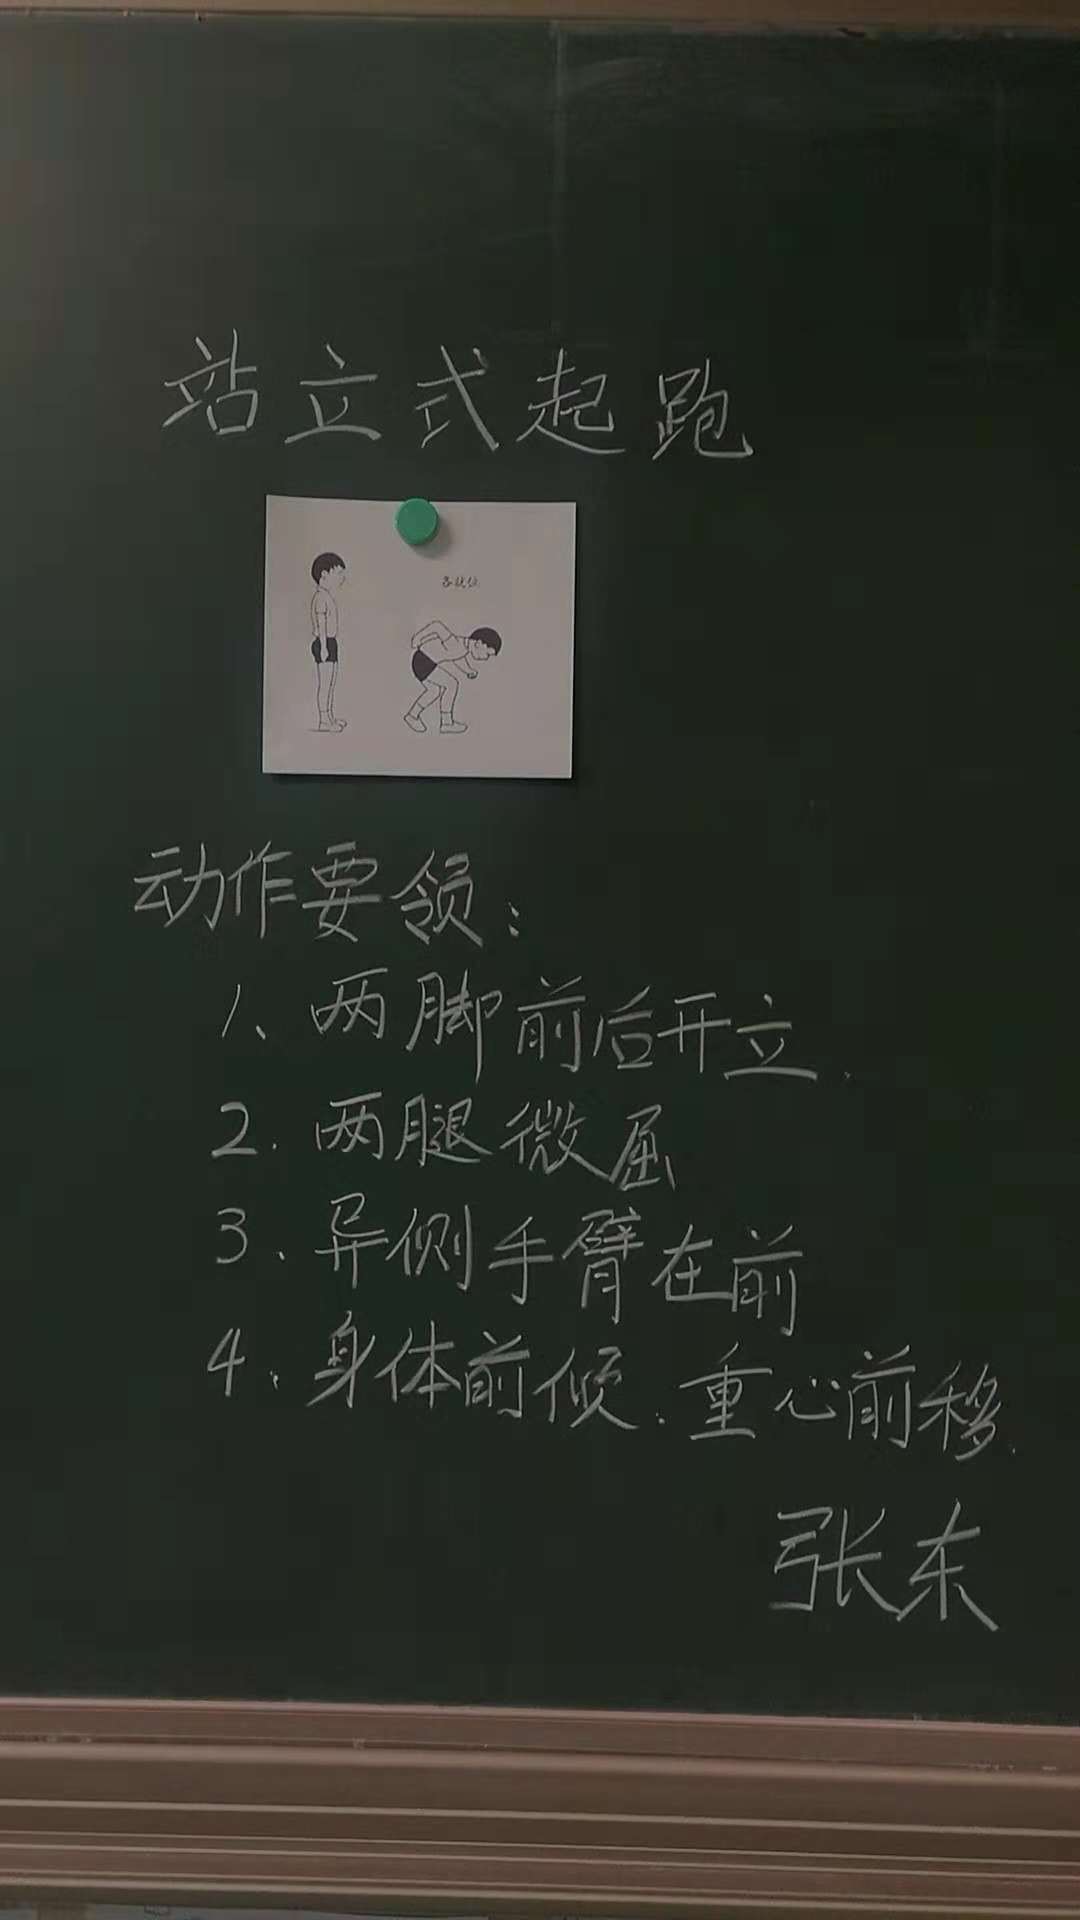 站立式起跑
各就位
动作要领：
1、两脚前后开立.
2.两腿微屈
3.异侧手臂在前
4.身体前倾.重心前移.
张东